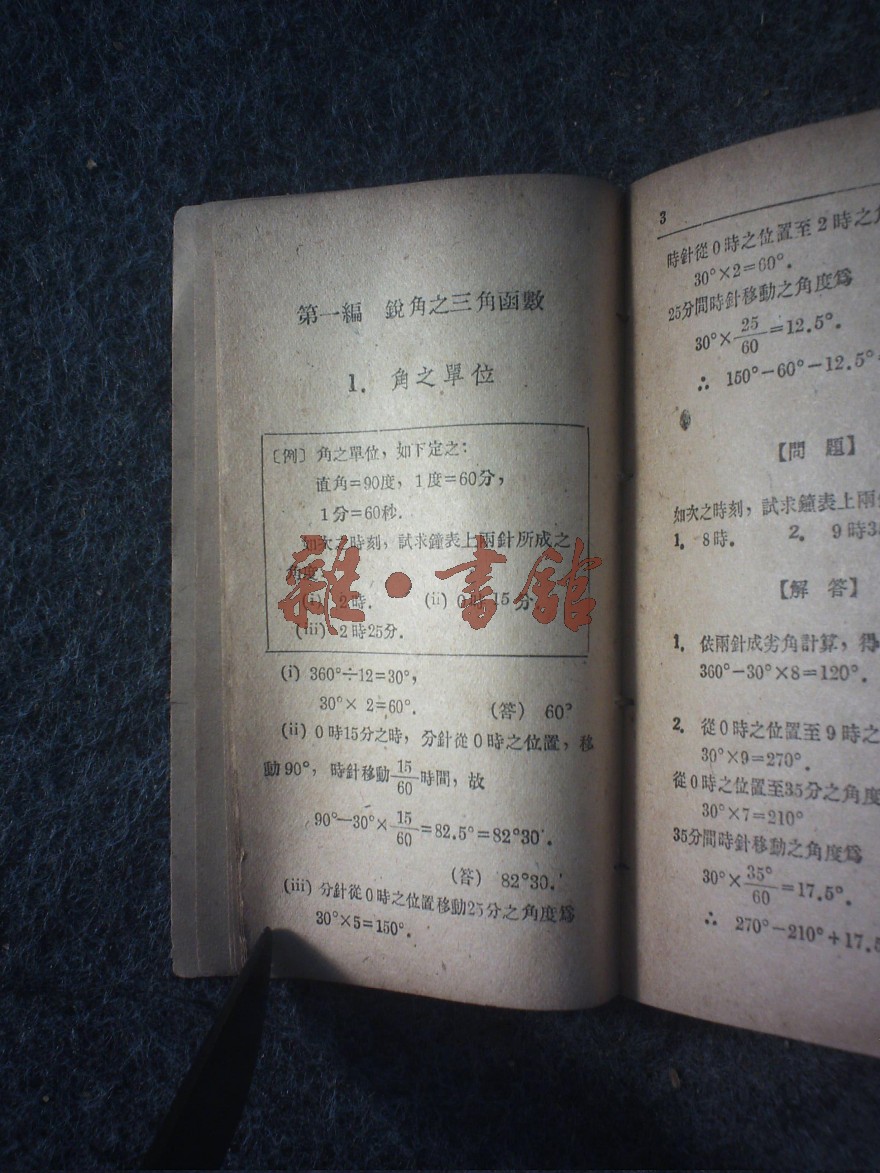 第一編 銳角之三角函數
1. 角之單位
〔例〕 角之單位，如下定之：
直角=90度，1度=60分，
1分=60秒.
如次之時刻，試求鐘表上兩針所成之
角度.
(i) 2時. (ii) 0時15分.
(iii) 2時25分.
(i) 360°÷12=30°，
30°× 2=60°. (答) 60°
(ii) 0時15分之時，分針從0時之位置，移
動90°，時針移動15/60時間，故
90°—30°×15/60=82.5°=82°30'.
(答) 82°30.'
(iii) 分針從0時之位置移動25分之角度爲
30°×5=150°.
雜·書館
3
時針從0時之位置至2時之
30°×2=60°.
25分間時針移動之角度爲
30°×25/60=12.5°.
∴ 150°−60°−12.5°
【問 題】
如次之時刻，試求鐘表上兩
1. 8時. 2. 9時3
【解 答】
1. 依兩針成劣角計算，得
360°−30°×8=120°.
2. 從0時之位置至9時之
30°×9=270°.
從0時之位置至35分之角度
30°×7=210°
35分間時針移動之角度爲
30°×35°/60=17.5°.
∴ 270°−210°+17.5